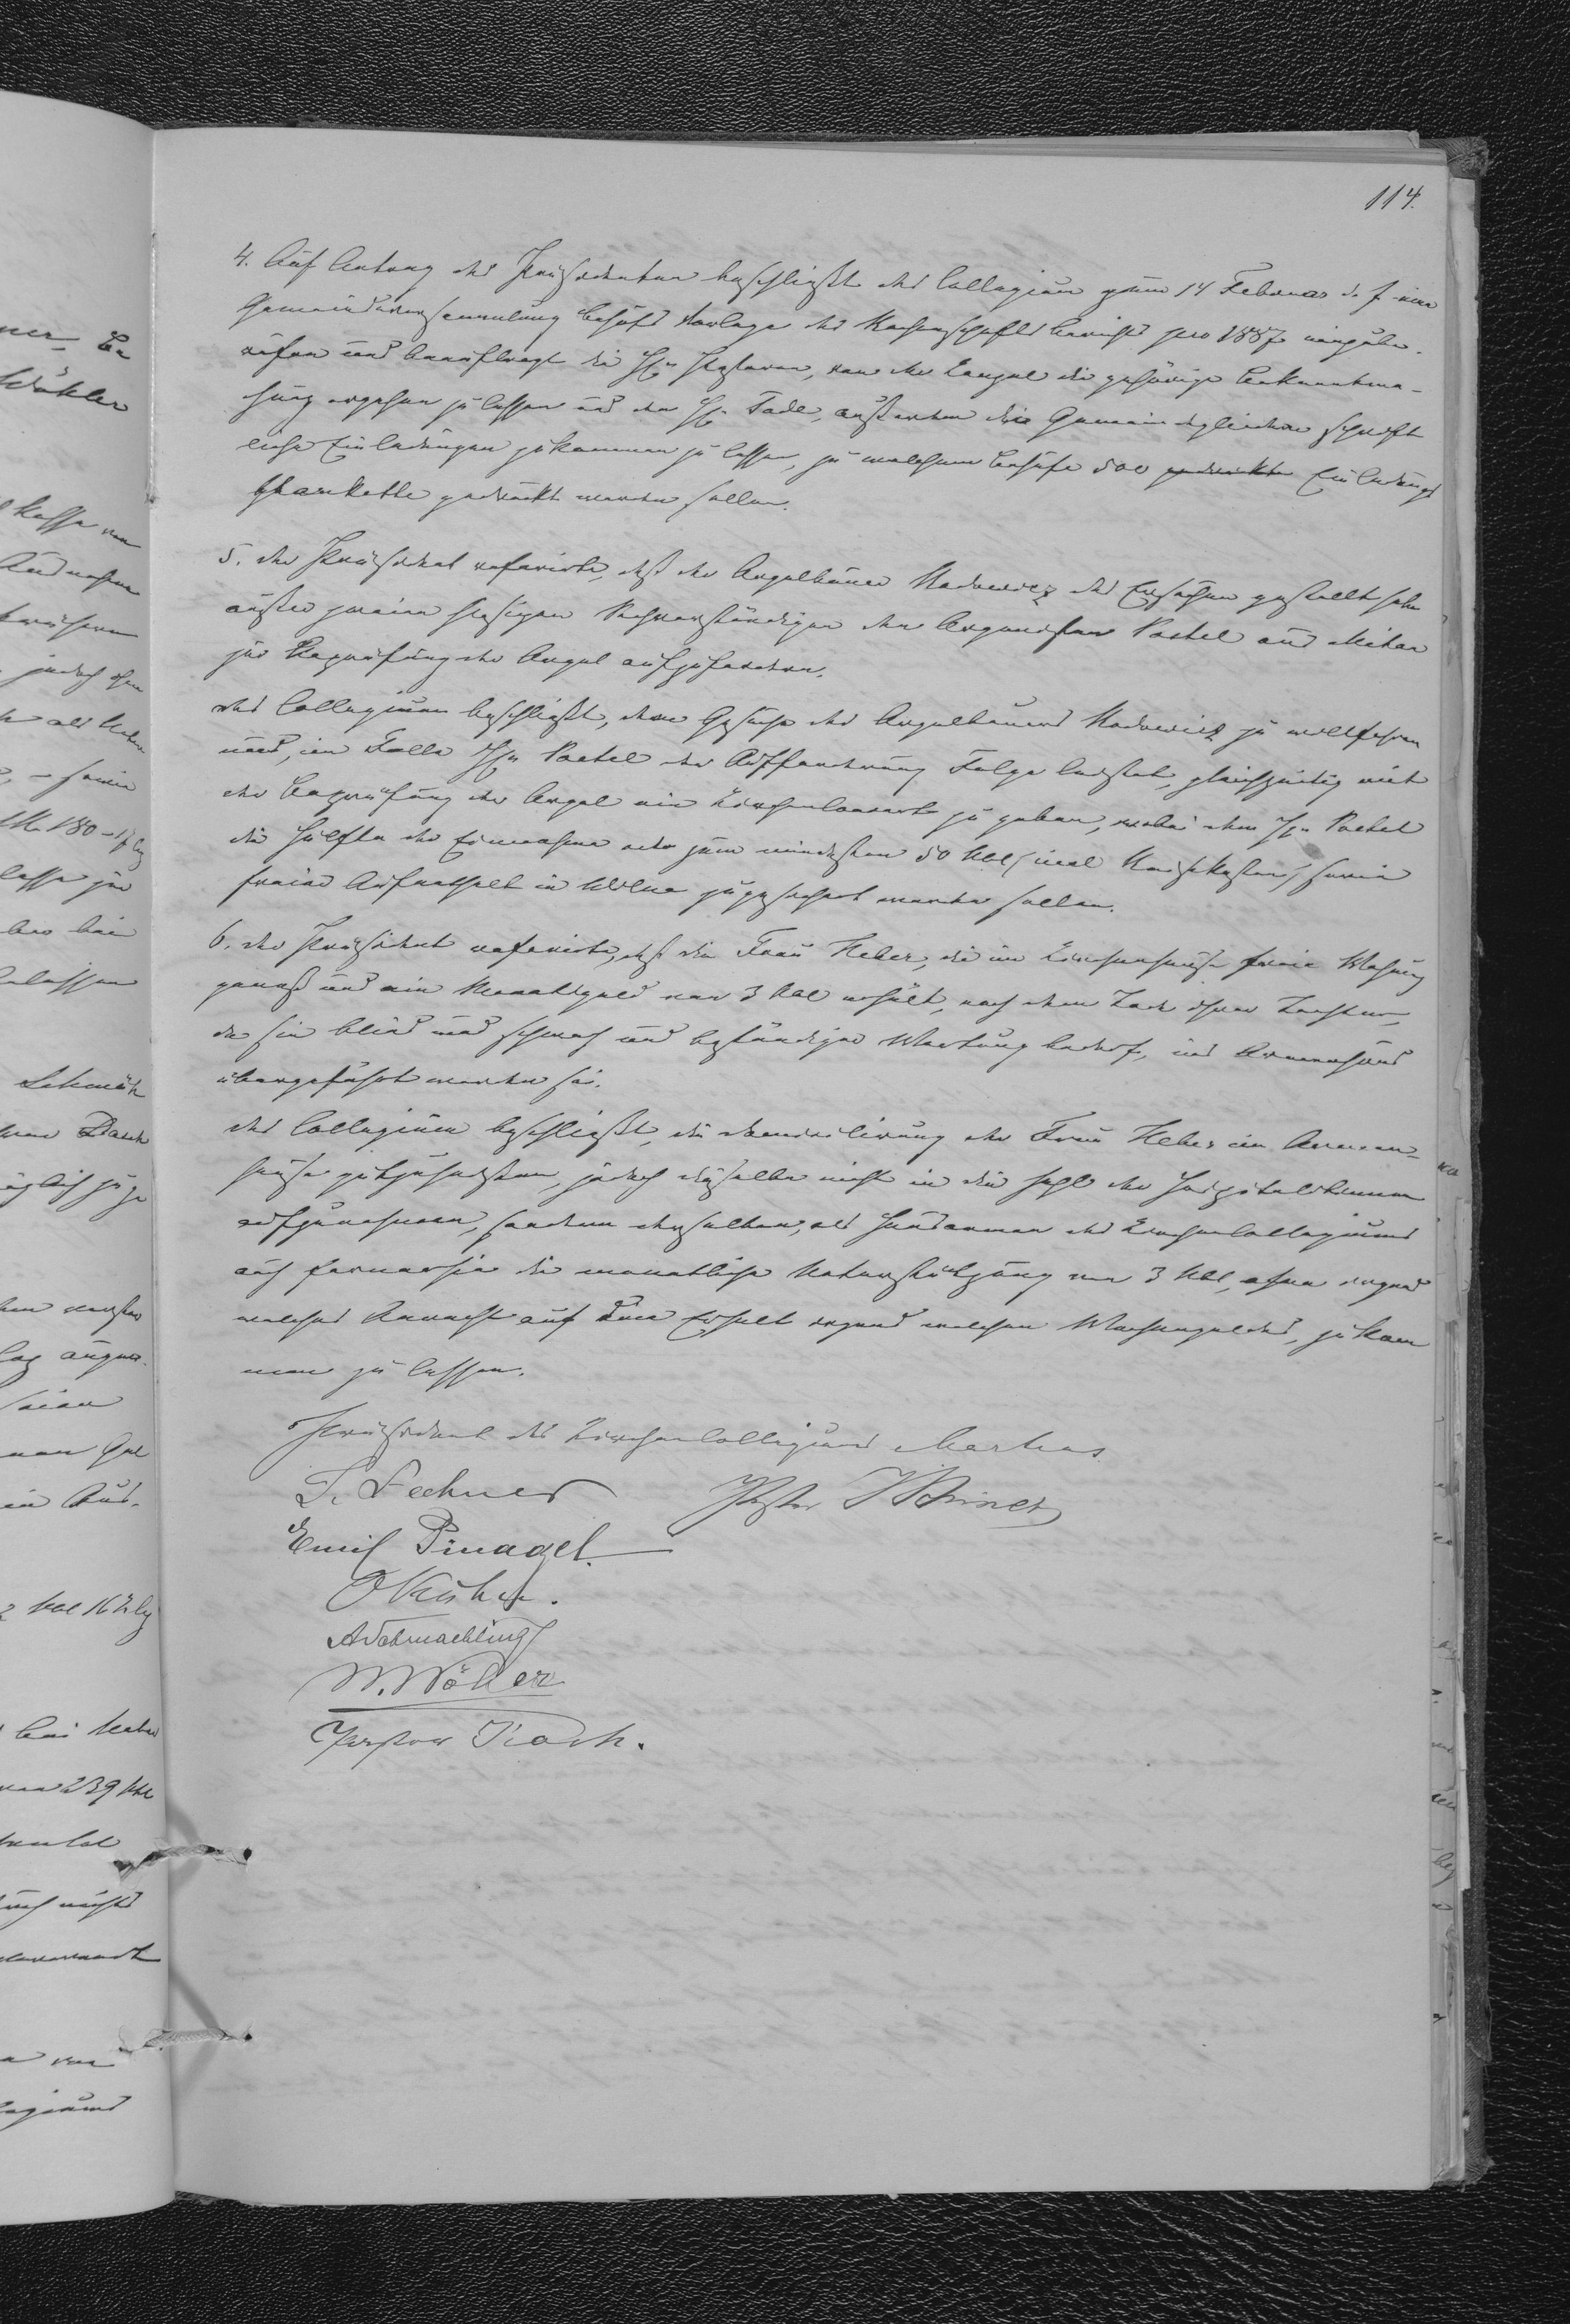 114.
4. Auf Antrag des Präsidenten beschließt das Collegium zum 14 Februar d. J. eine
Gemeindeversammlung behufs Vorlage des Rechenschaftsberichts pro 1887 einzube-
rufen und beauftragt die Hn Pastoren, von der Kanzel die gehörige Bekanntma-
chung ergehen zu lassen und den Hn Tade, außerdem die Gemeindeglieder schrift
liche Einladungen zukommen zu lassen, zu welchem Behufe 500 gedruckte Einladungs
blankette gedruckt werden sollen.
5. der Präsident referirte, daß der Orgelbauer Radowicz das Ersuchen gestellt habe
außer zweien hiesigen Sachverständigen den Organisten Postel aus Mitau
zur Begrüfung der Orgel aufzufordern.
das Collegium beschließt, dem Gesuche des Orgelbauers Radowicz zu willfahren
und, im Falle Hn Postel der Aufforderung Folge leistet, gleichzeitig mit
der Begrüfung der Orgel ein Kirchenconcert zu geben, wobei dem Hn Postel
die Hälfte der Einnahme oder zum mindesten 50 Rbl (incl Reisekosten), sowie
freier Aufenthalt in Wilna zugesichert werden sollen.
6. der Präsident referirte, daß die Frau Heber, die im Kirchenhause freie Wohnung
genoß und ein Monatsgeld von 3 Rbl erhält, nach dem Tode ihrer Tochter,
da sie blind und schwach und beständiger Wartung bedarf, ins Armenhaus
übergeführt worden sei.
das Collegium beschließt, die Domicilirung der Frau Heber im Armen-
hause gutzuheißen, jedoch dieselbe nicht in die Zahl der Hospitalitinnen
aufzunehmen, sondern derselben, als Hausarmen des Kirchencollegiums
auch fernerhin die monatliche Unterstützung von 3 Rbl, ohne irgend
welches Anrecht auf den Erhalt irgend welchen Wochengeldes, zukom
men zu lassen.
Präsident des Kirchencollegiums Martens
Pastor
Emil Pinagel
O Kühn.
A Schmaehling
Pastor